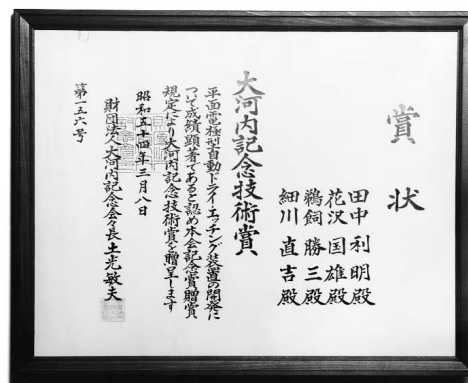 賞状
田中利明殿
花沢国雄殿
鵜飼勝三殿
細川直吉殿
大河内記念技術賞
平面電極型自動ドライ・エッチング装置の開発に
ついて成績顕著であると認め本会記念賞贈賞
規定により大河内記念技術賞を贈呈します
昭和五十四年三月八日
財団法人大河内記念会々長土光敏夫
第一五六号